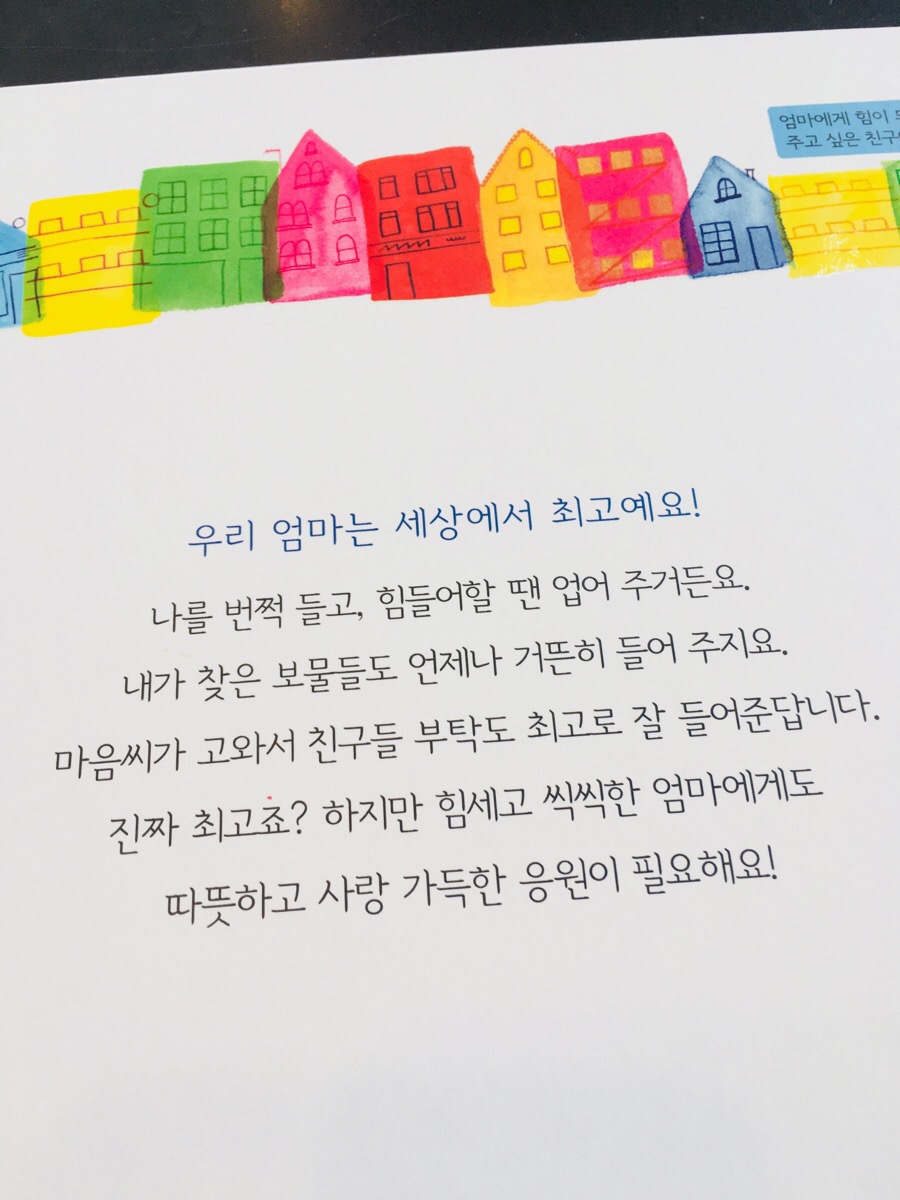 엄마에게 힘이
주고 싶은
우리 엄마는 세상에서 최고예요!
나를 번쩍 들고, 힘들어할 땐 업어 주거든요.
내가 찾은 보물들도 언제나 거뜬히 들어 주지요.
마음씨가 고와서 친구들 부탁도 최고로 잘 들어준답니다.
진짜 최고죠? 하지만 힘세고 씩씩한 엄마에게도
따뜻하고 사랑 가득한 응원이 필요해요!